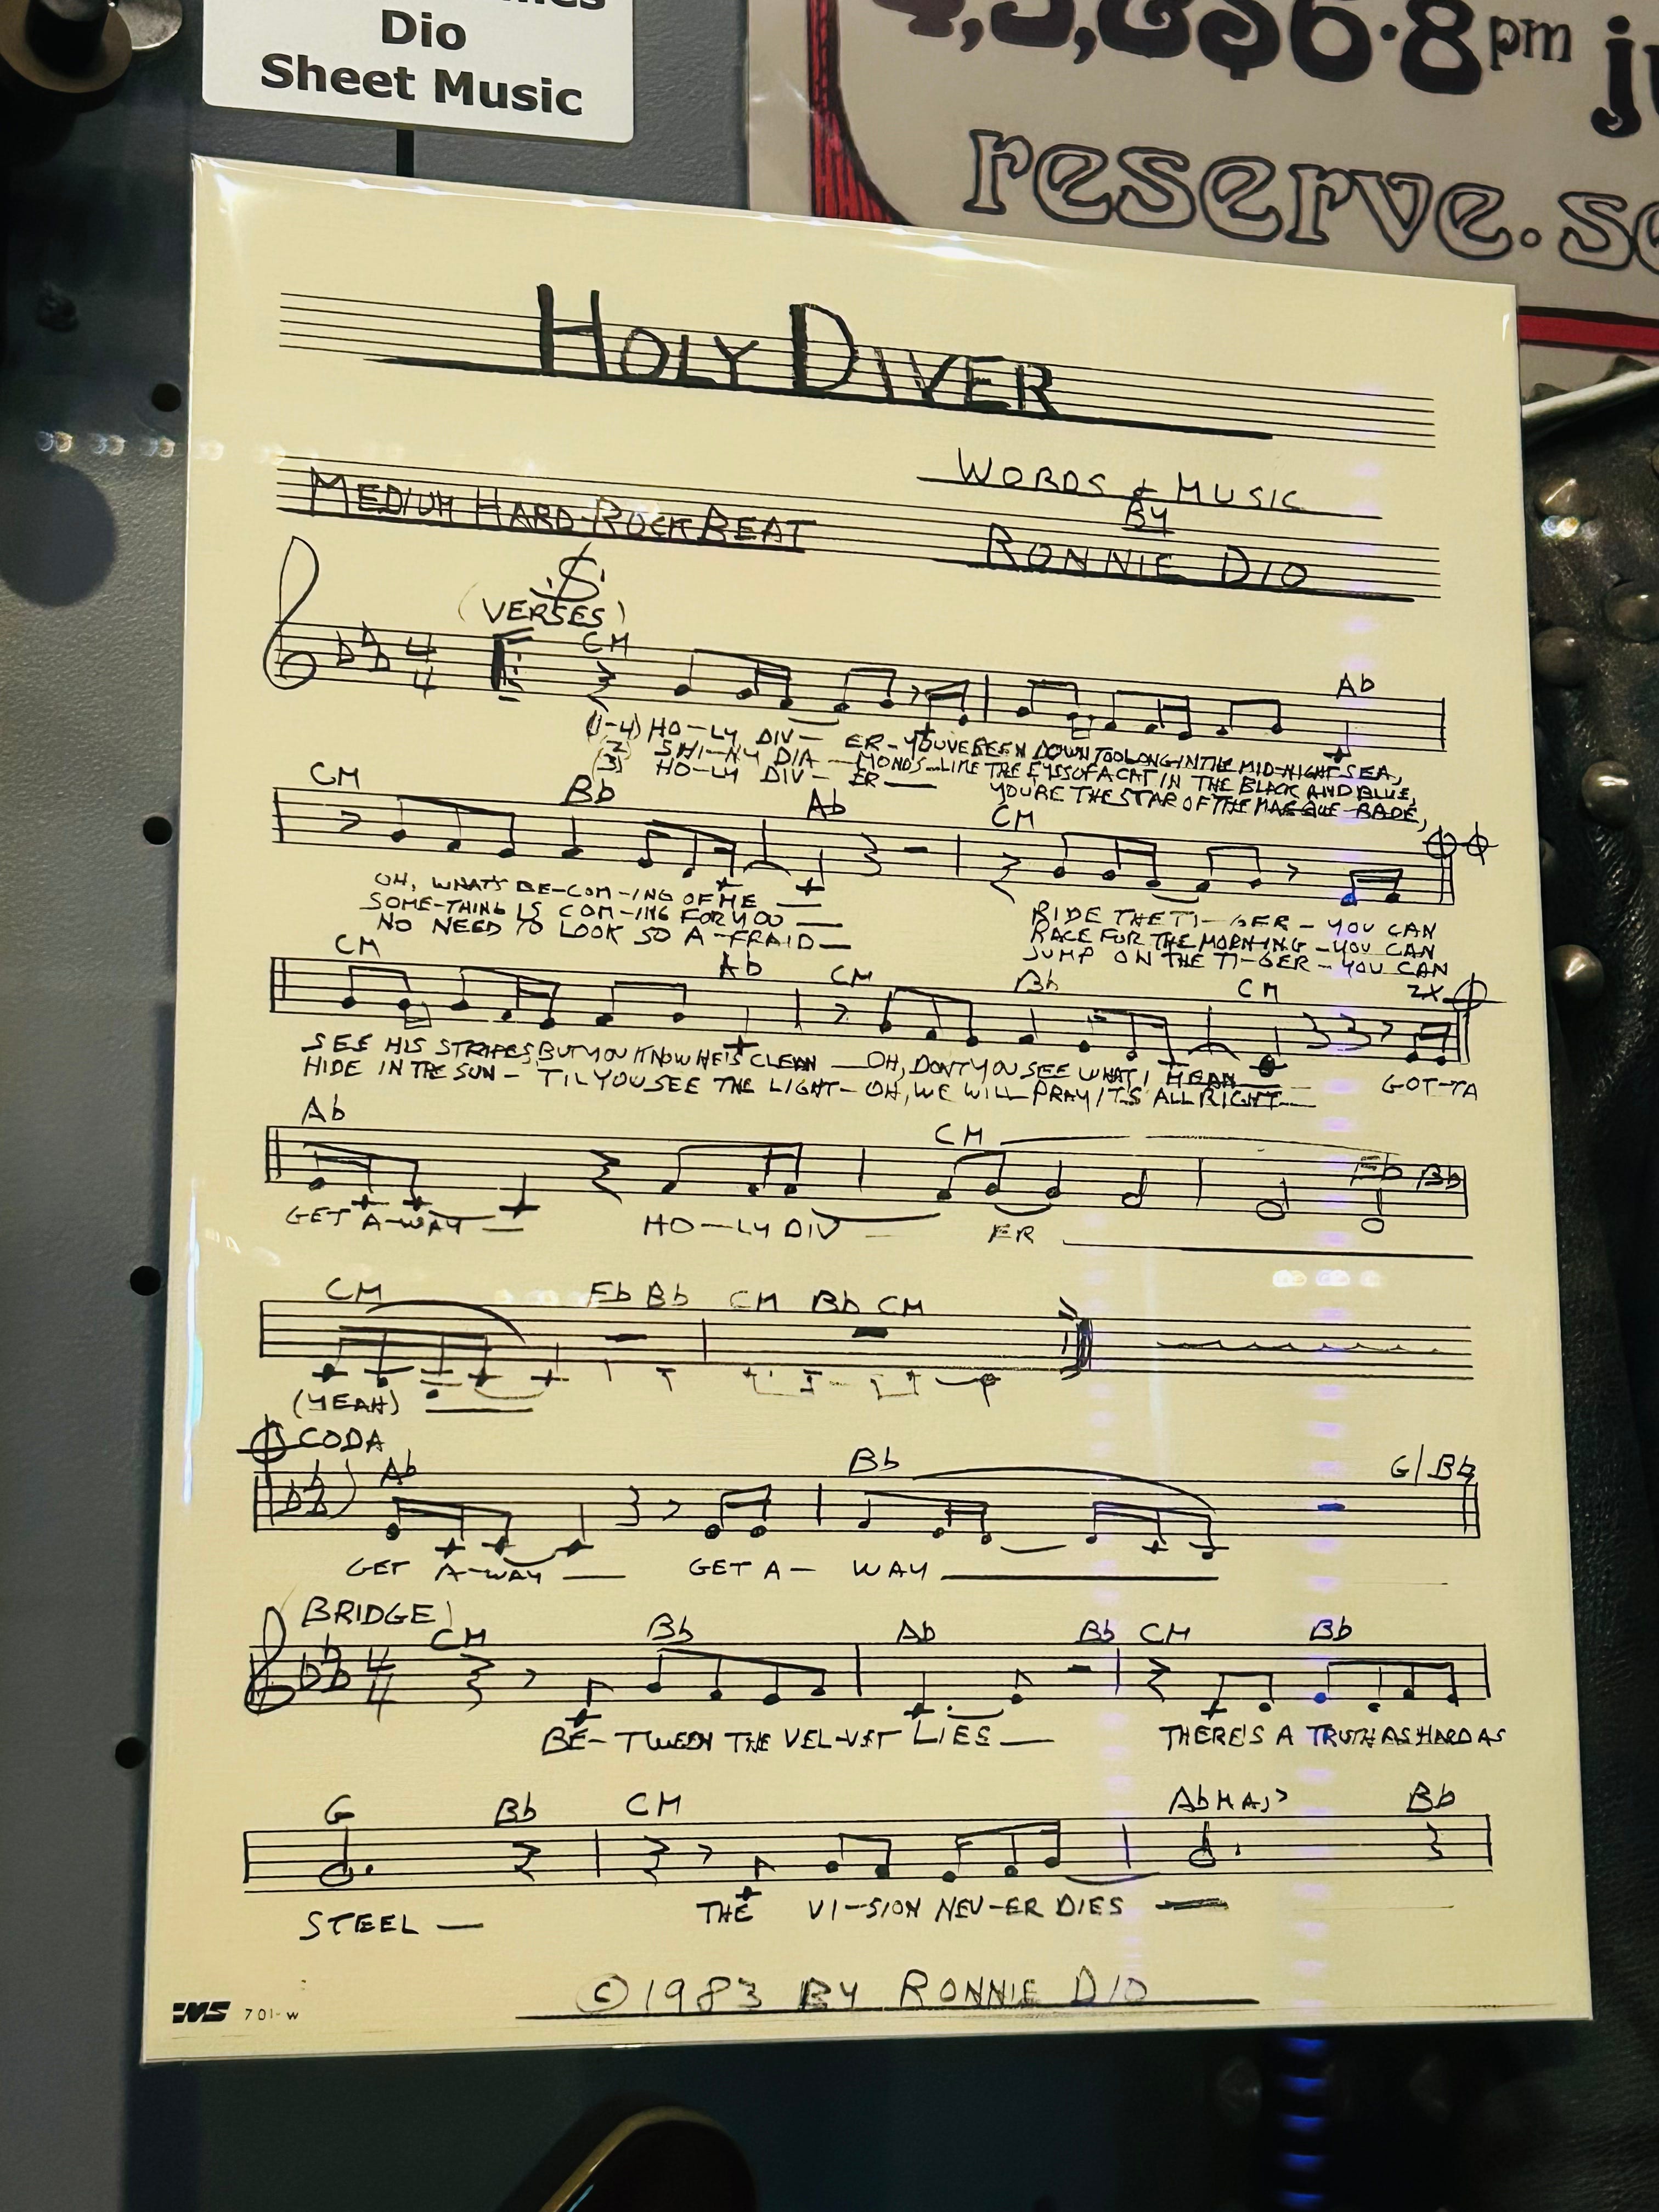 Dio
Sheet Music
6·8pm
reserve.
HOLY DIVER
WORDS & MUSIC
BY
RONNIE DIO
MEDIUM HARD ROCK BEAT
(VERSES)
4
4
CM Ab
(1-4) HO-LY DIV- ER-YOUVE BEEN DOWN TOO LONG IN THE MID-NIGHT SEA,
(2) SHI-NY DIA-MONDS-LIKE THE EYES OF A CAT IN THE BLACK AND BLUE,
(3) HO-LY DIV- ER- YOURE THE STAR OF THE MASQUE-RADE,
CM Bb Ab CM
OH, WHATS BE-COM-ING OF ME
SOME-THING IS COM-ING FOR YOU
NO NEED TO LOOK SO A-FRAID
RIDE THE TI-GER-YOU CAN
RACE FOR THE MORN-ING-YOU CAN
JUMP ON THE TI-GER-YOU CAN
CM Ab CM Bb CM 2X
SEE HIS STRIPES, BUT YOU KNOW HE'S CLEAN - OH, DONT YOU SEE WHAT I MEAN
HIDE IN THE SUN - TIL YOU SEE THE LIGHT - OH, WE WILL PRAY ITS ALL RIGHT
GOT-TA
Ab CM Eb Bb
GET A-WAY HO-LY DIV- ER
CM Eb Bb CM Bb CM
(YEAH)
CODA
Ab Bb G/B♮
GET A-WAY GET A- WAY
BRIDGE)
4
4
CM Bb Ab Bb CM Bb
BE-TWEEN THE VEL-VET LIES THERE'S A TRUTH AS HARD AS
G Bb CM Ab MAJ7 Bb
STEEL THE VI-SION NEV-ER DIES
©1983 BY RONNIE DIO
701-W